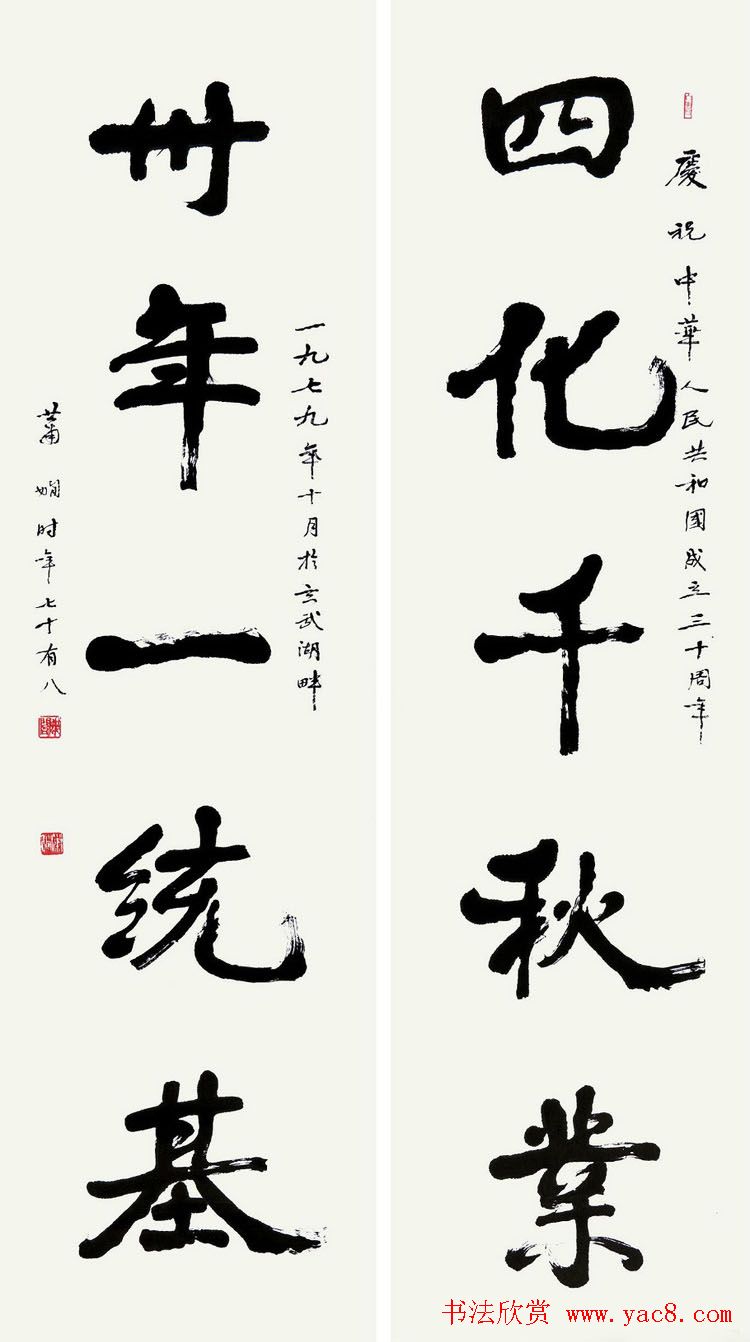 慶祝中華人民共和國成立三十周年
四化千秋業
一九七九年十月於玄武湖畔
卅年一统基
蕭嫻时年七十有八
书法欣赏 www.yac8.com